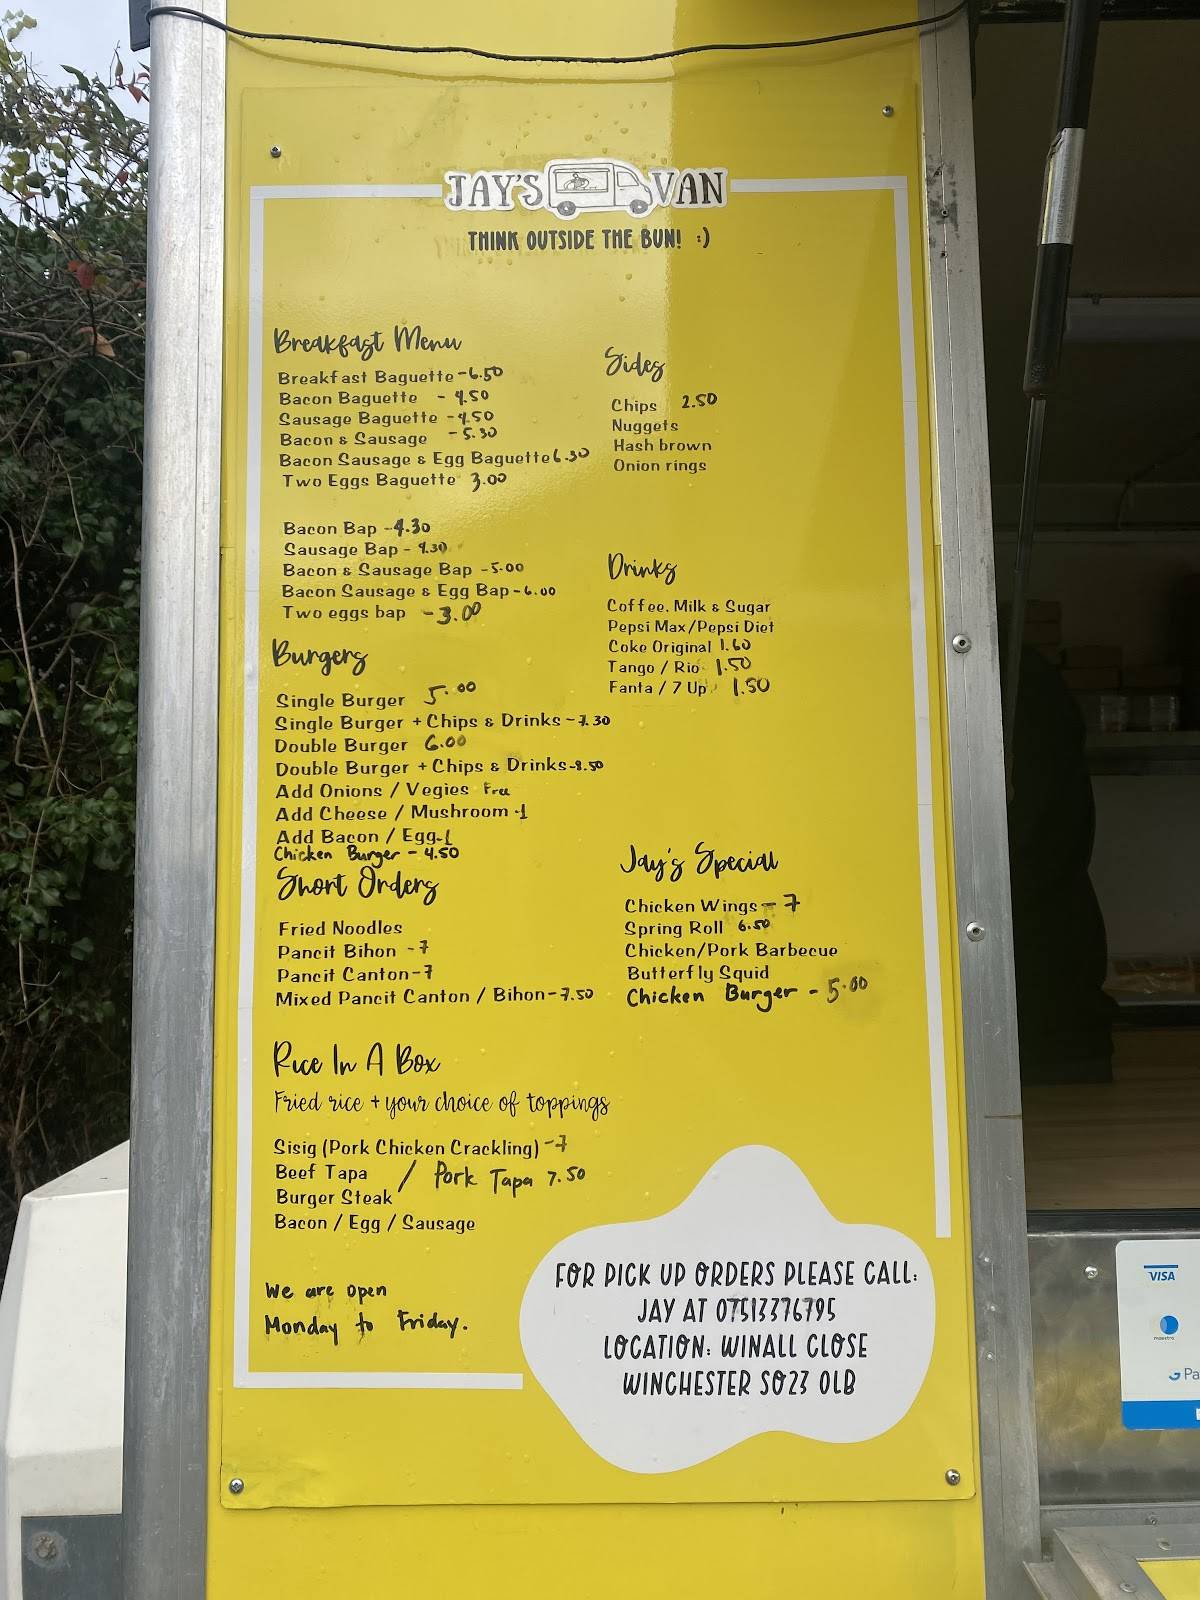 JAY'S VAN
THINK OUTSIDE THE BUN! :)
Breakfast Menu
Breakfast Baguette - 6.50
Bacon Baguette - 4.50
Sausage Baguette - 4.50
Bacon & Sausage - 5.30
Bacon Sausage & Egg Baguette 6.30
Two Eggs Baguette 3.00
Bacon Bap - 4.30
Sausage Bap - 4.30
Bacon & Sausage Bap - 5.00
Bacon Sausage & Egg Bap - 6.00
Two eggs bap - 3.00
Burgers
Single Burger 5.00
Single Burger + Chips & Drinks - 7.30
Double Burger 6.00
Double Burger + Chips & Drinks - 8.50
Add Onions / Vegies Free
Add Cheese / Mushroom - 1
Add Bacon / Egg - 1
Chicken Burger - 4.50
Short Orders
Fried Noodles
Pancit Bihon - 7
Pancit Canton - 7
Mixed Pancit Canton / Bihon - 7.50
Rice In A Box
Fried rice + your choice of toppings
Sisig (Pork Chicken Crackling) - 7
Beef Tapa / Pork Tapa 7.50
Burger Steak
Bacon / Egg / Sausage
We are open
Monday to Friday.
Sides
Chips 2.50
Nuggets
Hash brown
Onion rings
Drinks
Coffee, Milk & Sugar
Pepsi Max/Pepsi Diet
Coke Original 1.60
Tango / Rio 1.50
Fanta / 7 Up 1.50
Jay's Special
Chicken Wings - 7
Spring Roll 6.50
Chicken/Pork Barbecue
Butterfly Squid
Chicken Burger - 5.00
FOR PICK UP ORDERS PLEASE CALL:
JAY AT 07513376795
LOCATION: WINALL CLOSE
WINCHESTER SO23 0LB
VISA
maestro
G Pa